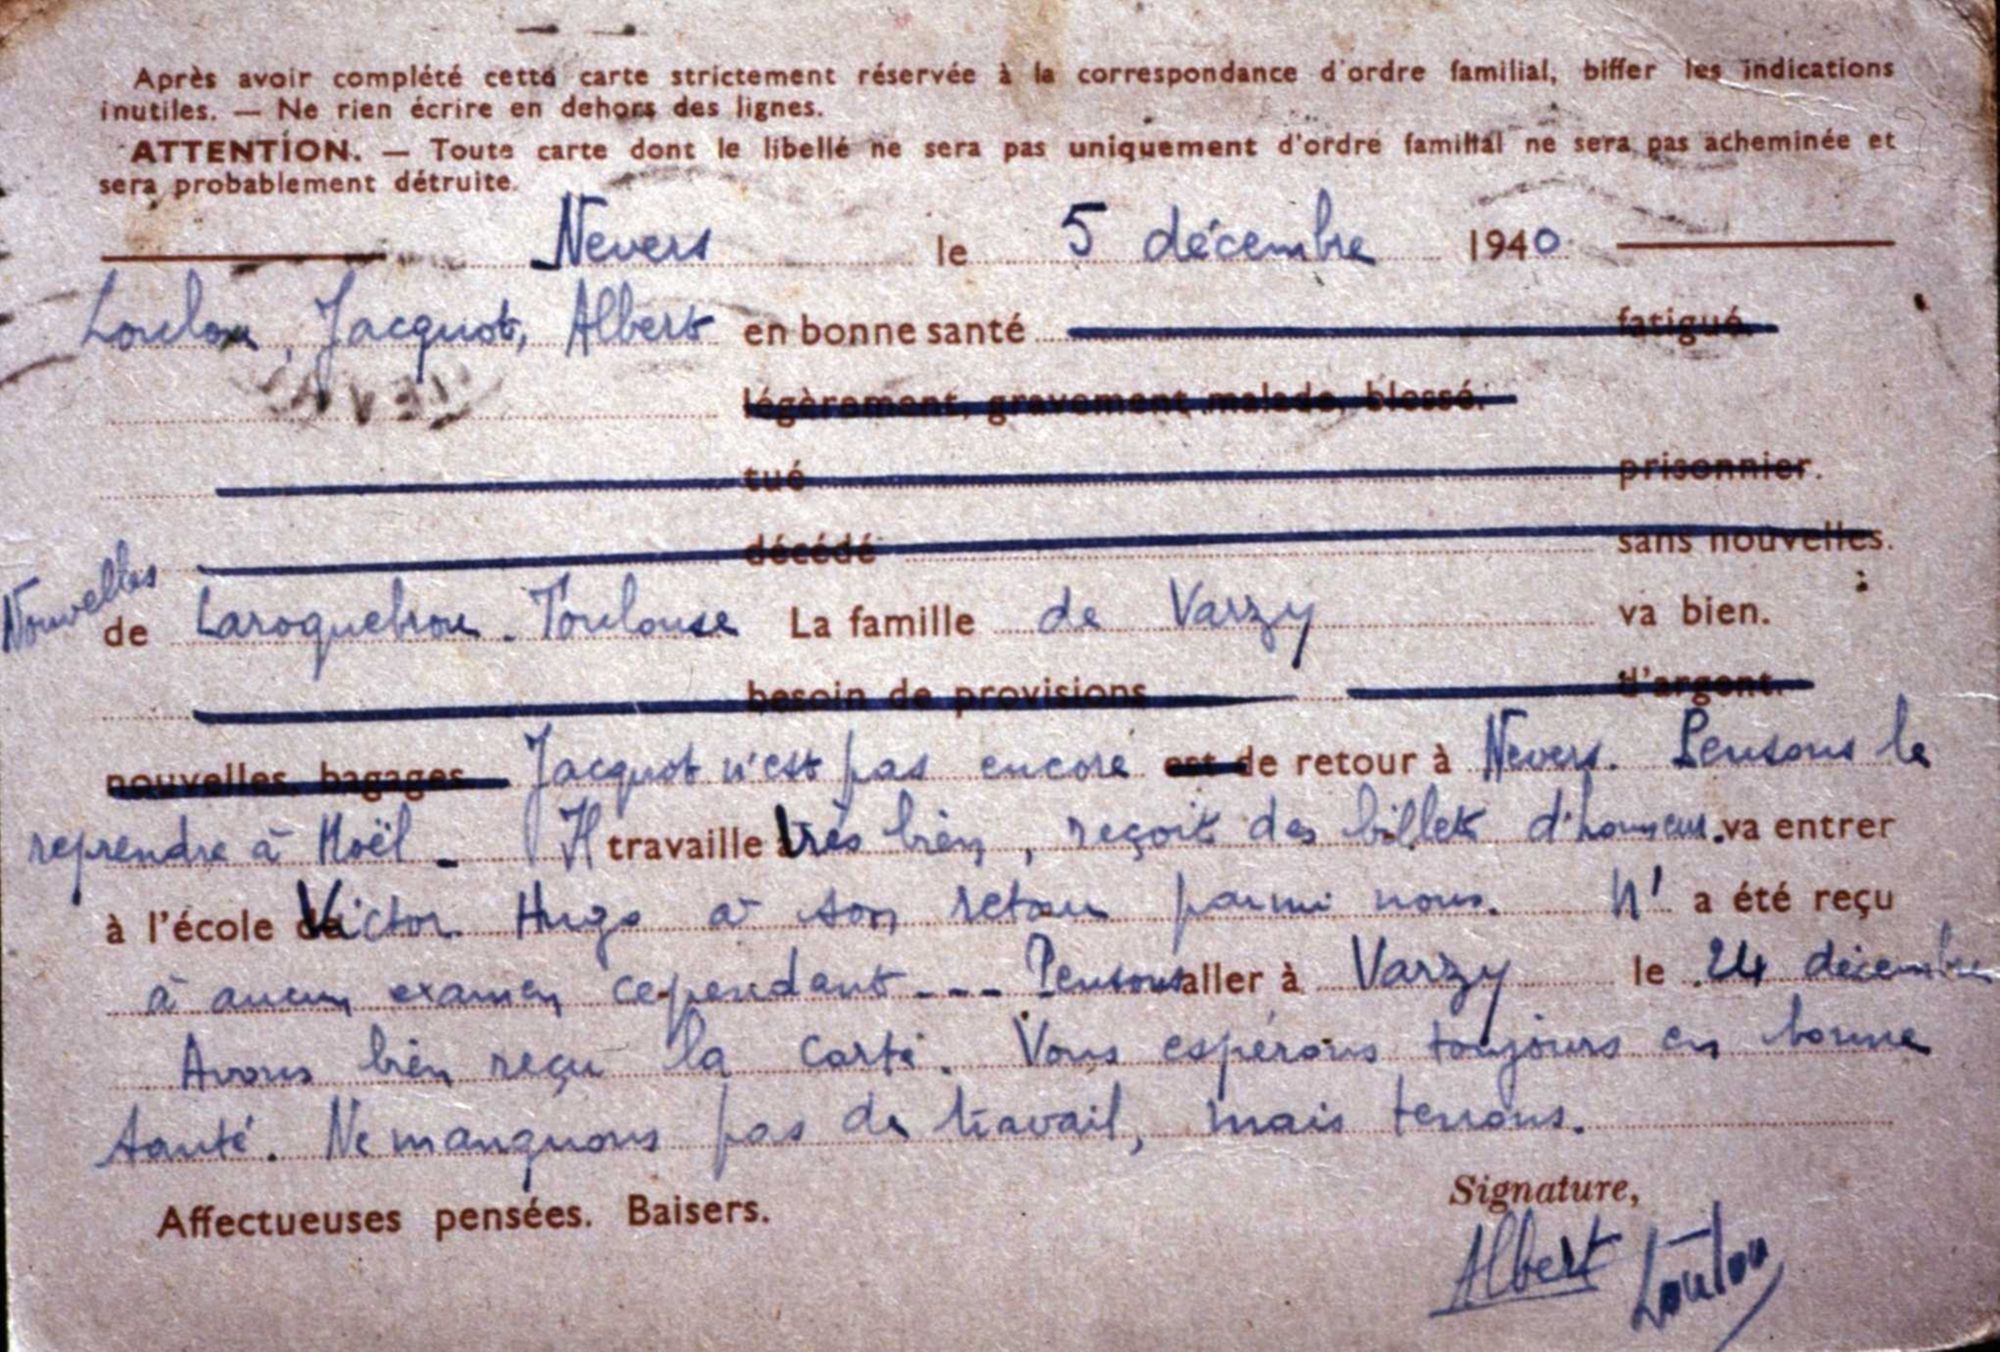 Après avoir complété cette carte strictement réservée à la correspondance d'ordre familial, biffer les indications
inutiles. — Ne rien écrire en dehors des lignes.
ATTENTION. — Toute carte dont le libellé ne sera pas uniquement d'ordre familial ne sera pas acheminée et
sera probablement détruite.
Nevers le 5 décembre 1940
Loulou, Jacquot, Albert en bonne santé fatigué.
légèrement, gravement malade, blessé.
tué prisonnier.
décédé sans nouvelles.
Nouvelles
de Laroquebrou. Toulouse La famille de Varzy va bien.
besoin de provisions d'argent.
nouvelles, bagages Jacquot n'est pas encore est de retour à Nevers. Pensons le
reprendre à Noël - Il travaille très bien, reçoit des billets d'honneur. va entrer
à l'école de Victor Hugo à son retour parmi nous. N' a été reçu
à aucun examen cependant --- Pensons aller à Varzy le 24 décembre
Avons bien reçu la carte. Vous espérons toujours en bonne
santé. Ne manquons pas de travail, mais tenons.
Affectueuses pensées. Baisers.
Signature,
Albert Loulou